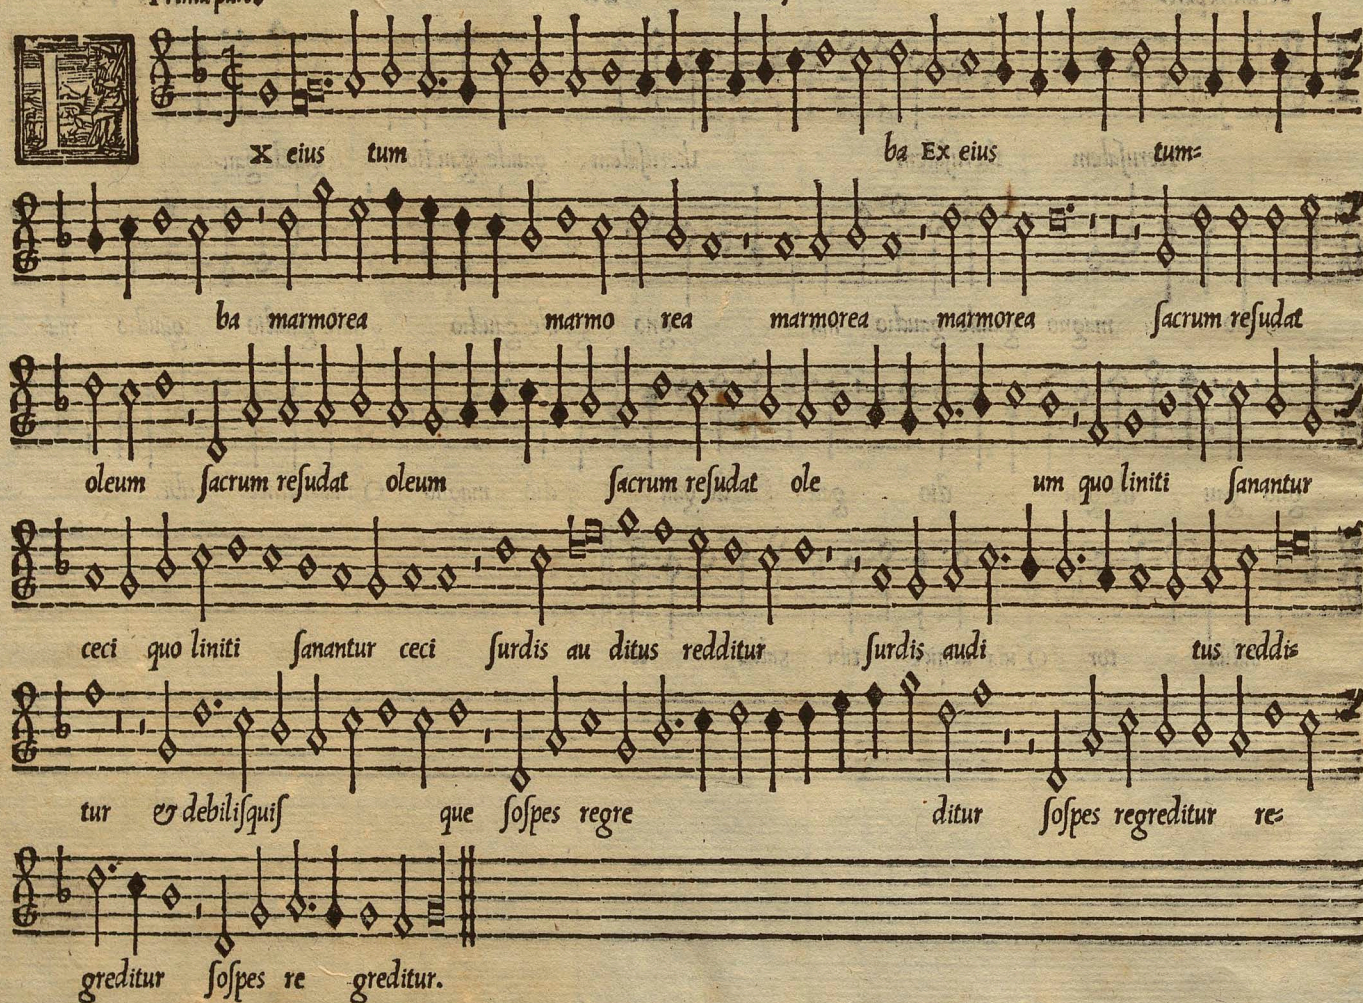 Prima pars
X eius tum ba Ex eius tum=
ba marmorea marmo rea marmorea marmorea ſacrum reſudat
oleum ſacrum reſudat oleum ſacrum reſudat ole um quo liniti ſanantur
ceci quo liniti ſanantur ceci ſurdis au ditus redditur ſurdis audi tus reddi=
tur & debiliſquiſ que ſoſpes regre ditur ſoſpes regreditur re=
greditur ſoſpes re greditur.